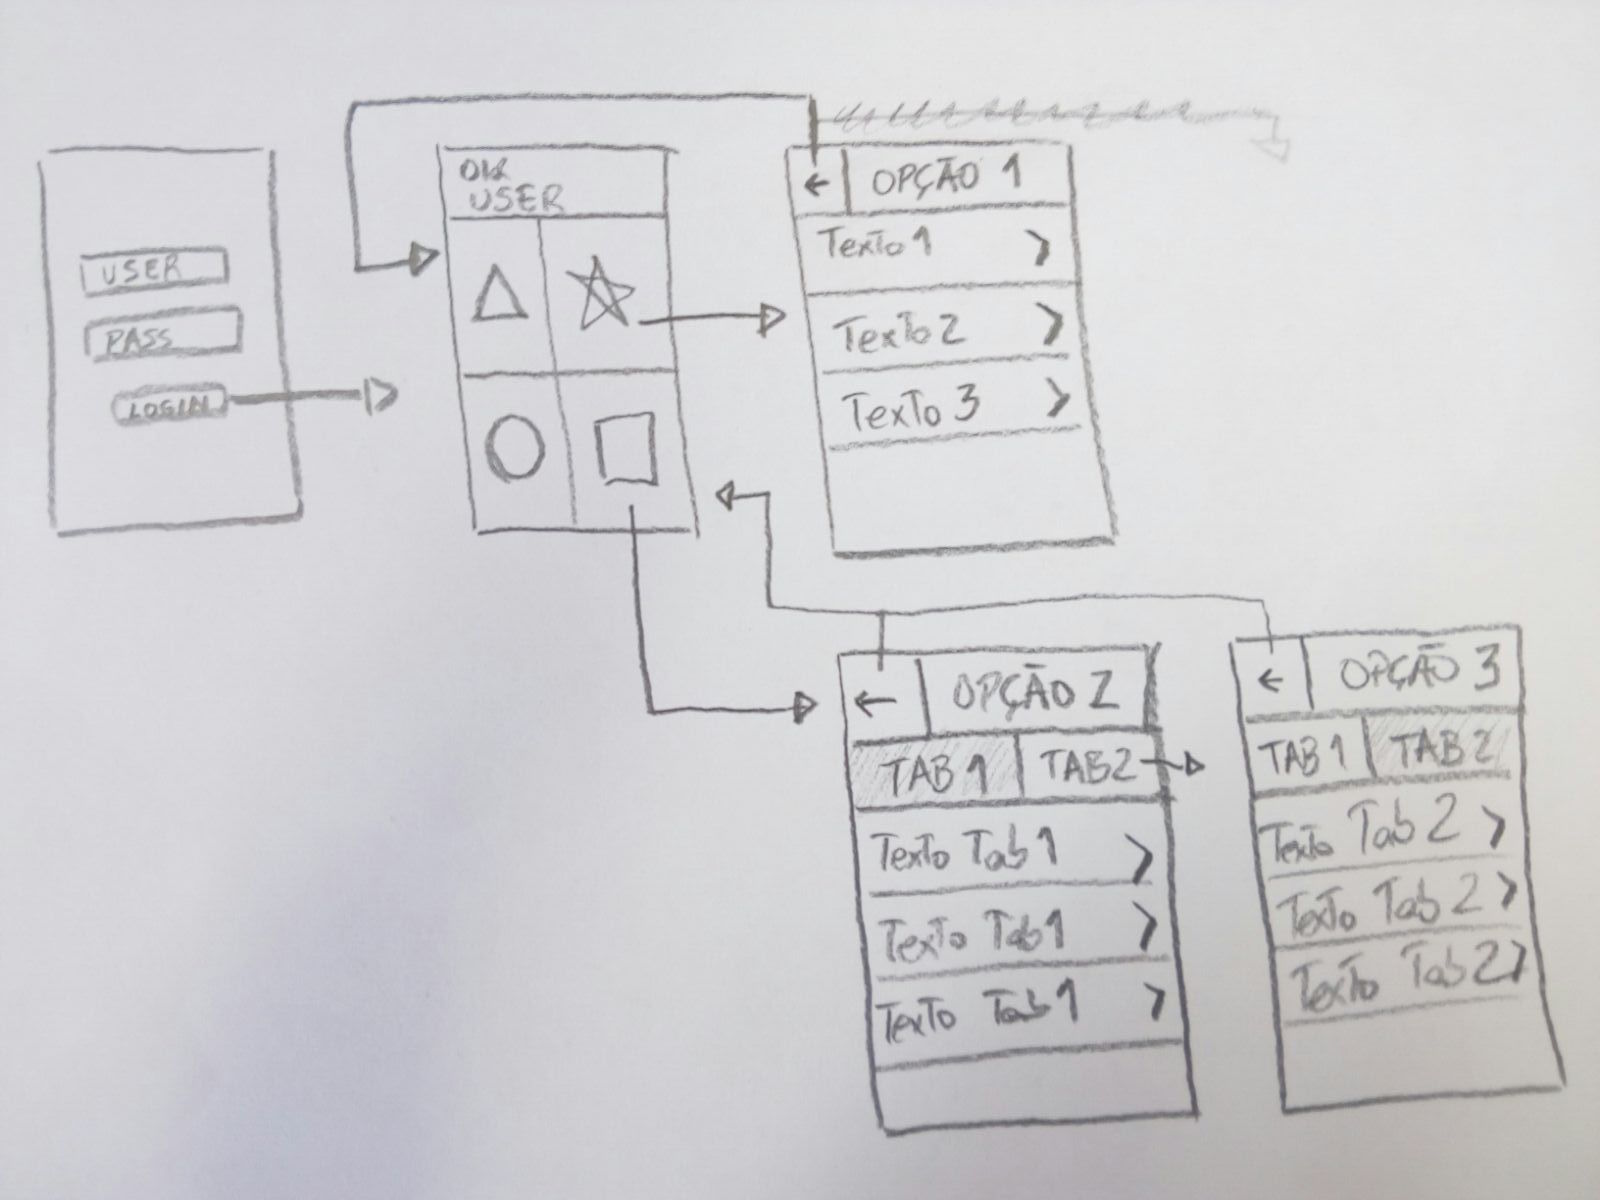 USER
PASS
LOGIN
OLÁ
USER
← OPÇÃO 1
Texto 1 >
Texto 2 >
Texto 3 >
← OPÇÃO 2
TAB 1 TAB 2
Texto Tab 1 >
Texto Tab 1 >
Texto Tab 1 >
← OPÇÃO 3
TAB 1 TAB 2
Texto Tab 2 >
Texto Tab 2 >
Texto Tab 2 >